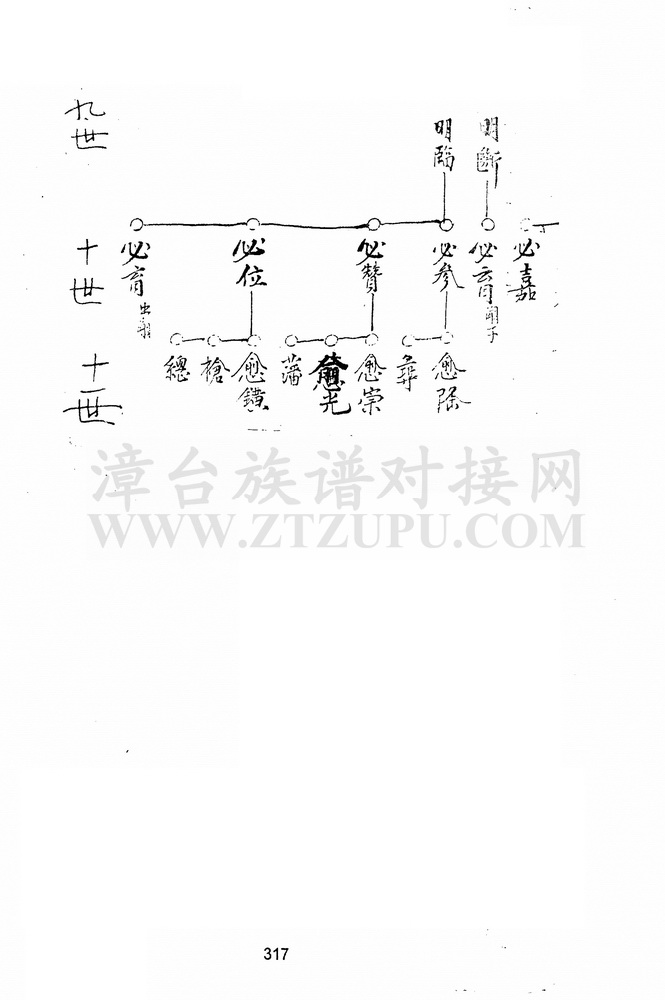 九世
明臨
明斷
十世
必育
出嗣
必位
必贊
必參
必嘉
十一世
總
槍
愈鐄
藩
愈光
愈崇
彝
愈除
漳台族谱对接网
WWW.ZTZUPU.COM
317